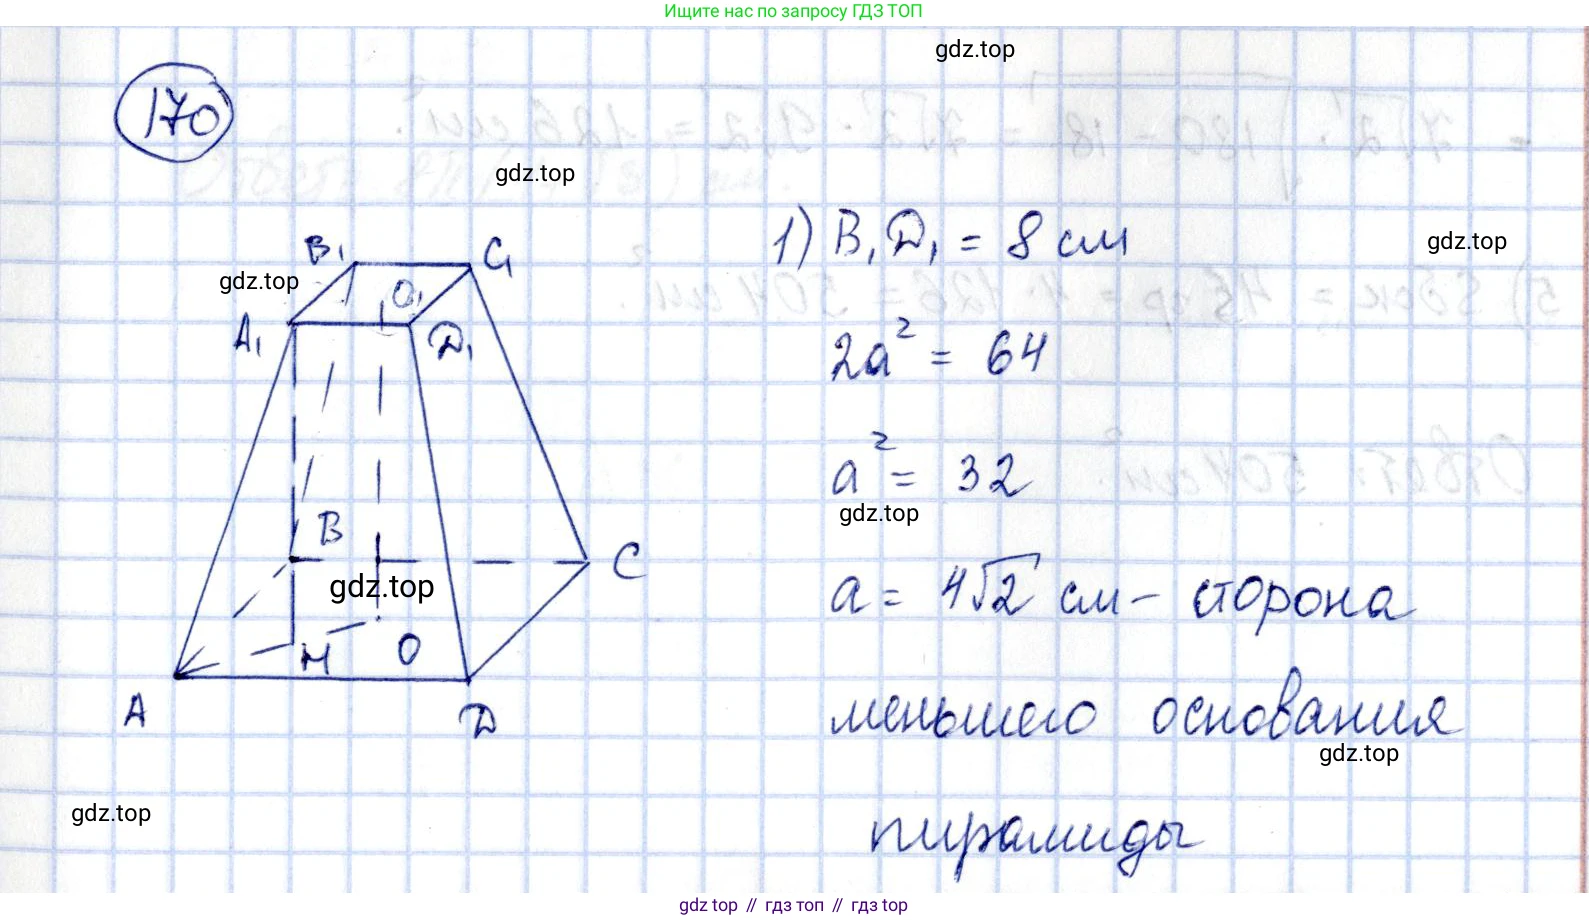 Ищите нас по запросу ГДЗ ТОП
gdz.top
170
gdz.top
1) B₁D₁ = 8 см
gdz.top
B₁
C₁
gdz.top
O₁
A₁
D₁
2a² = 64
a² = 32
gdz.top
B
C
gdz.top
a = 4√2 см – сторона
M
O
A
D
меньшего основания
gdz.top
gdz.top
пирамиды
gdz.top // гдз топ // гдз top